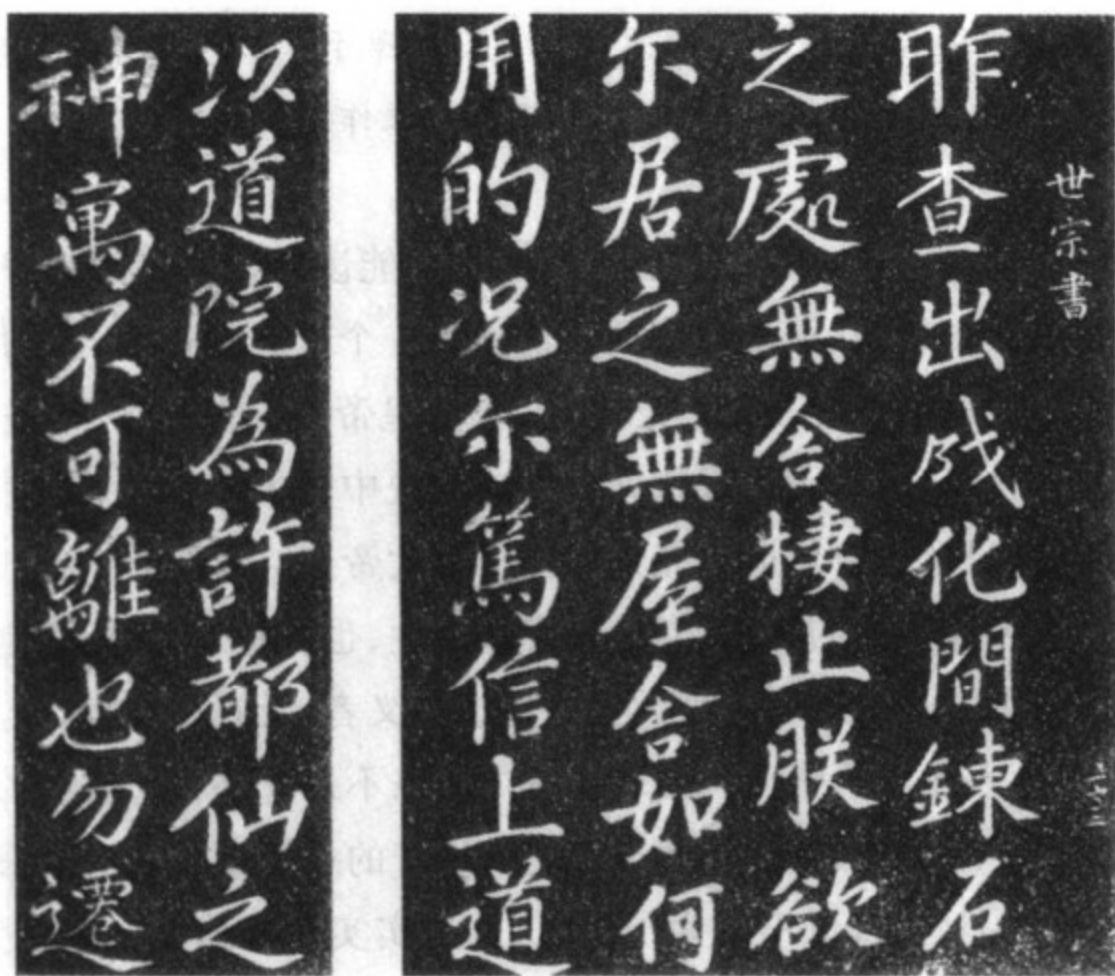 世宗書
昨查出成化間鍊石
之處無舍棲止朕欲
尓居之無屋舍如何
用的况尓篤信上道
次道院為許都仙之
神寓不可離也勿遷